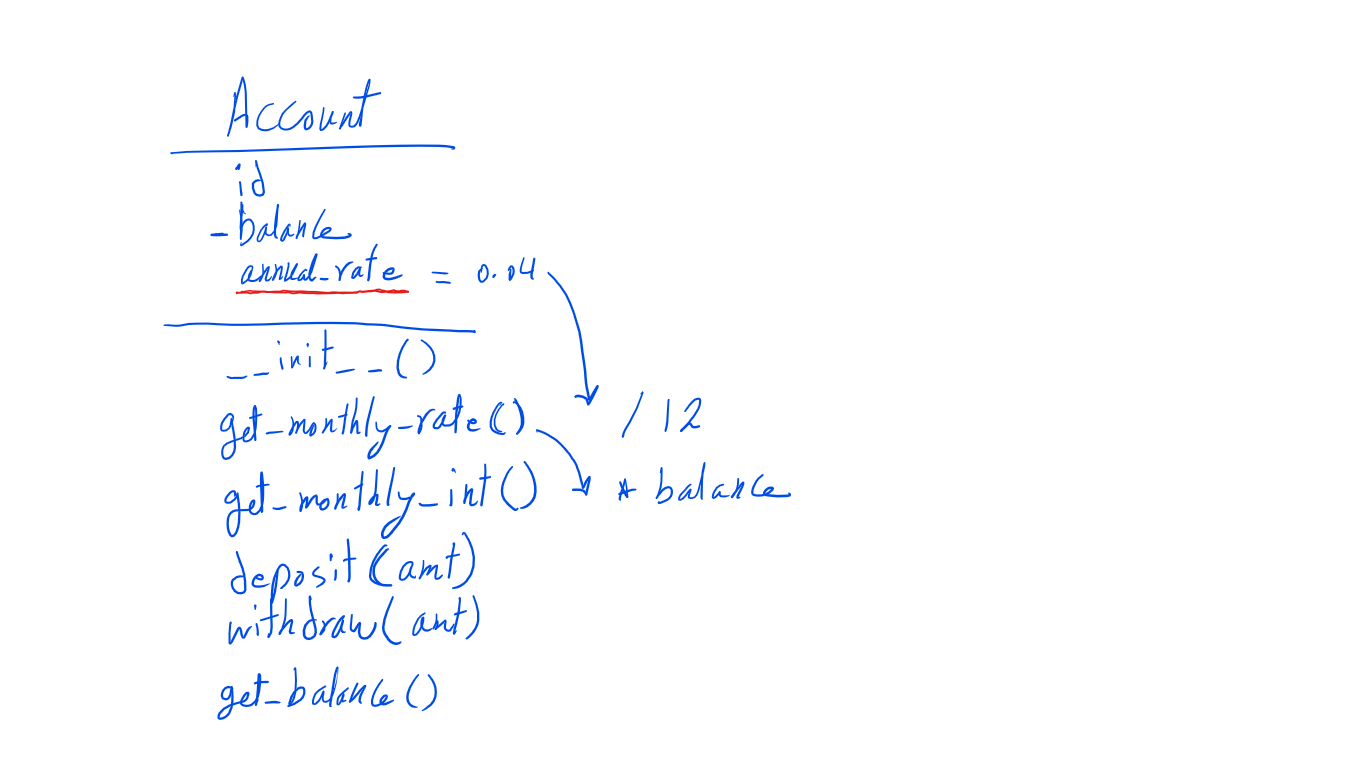 Account
id
-balance
annual_rate = 0.04
__init__()
get_monthly_rate() / 12
get_monthly_int() * balance
deposit(amt)
withdraw(amt)
get_balance()